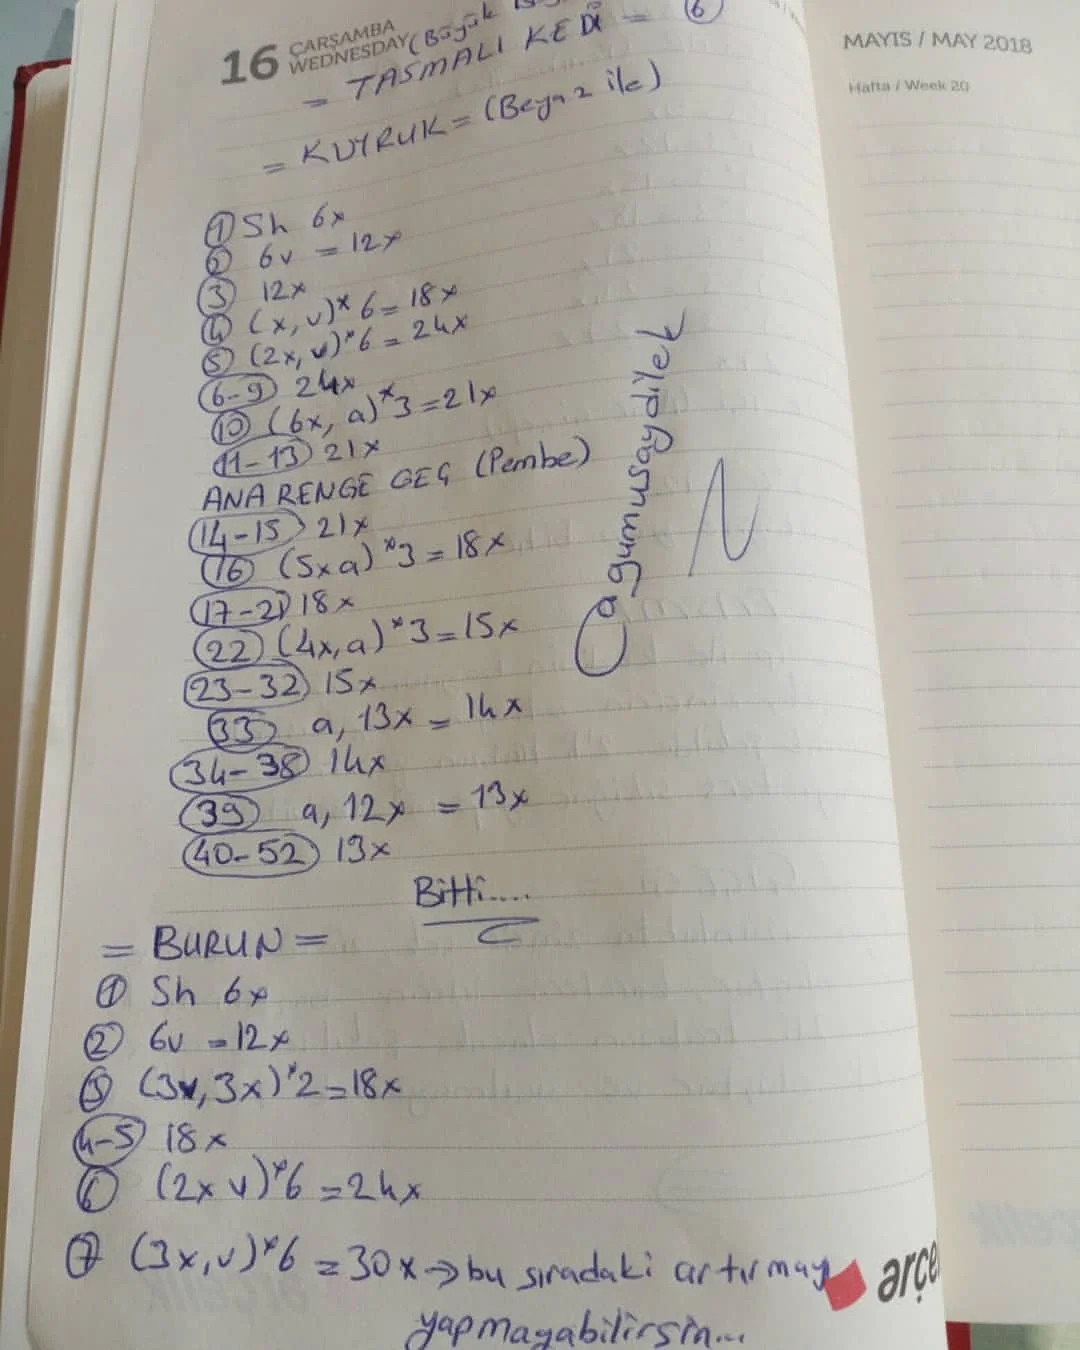 16 ÇARŞAMBA
WEDNESDAY (Büyük
= TASMALI KEDİ = 6
= KUYRUK = (Beyaz ile)
1 Sh 6x
2 6v = 12x
3 12x
4 (x, v)*6 = 18x
5 (2x, v)*6 = 24x
6-9 24x
10 (6x, a)*3 = 21x
11-13 21x
ANA RENGE GEÇ (Pembe)
14-15 21x
16 (5xa)*3 = 18x
17-21 18x
22 (4x, a)*3 = 15x
23-32 15x
33 a, 13x = 14x
34-38 14x
39 a, 12x = 13x
40-52 13x
Bitti....
= BURUN =
1 Sh 6x
2 6v = 12x
3 (3v, 3x)*2 = 18x
4-5 18x
6 (2x v)*6 = 24x
7 (3x, v)*6 = 30x → bu sıradaki artırmayı
yapmayabilirsin...
@gumusaydilek
arçe
MAYIS / MAY 2018
Hafta / Week 20